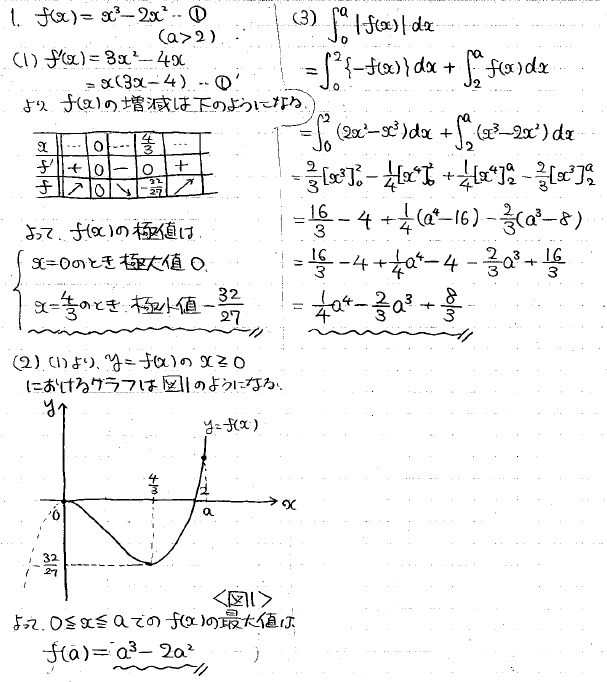 1. f(x) = x³−2x² … ①
(a>2)
(1) f'(x) = 3x²−4x
= x(3x−4) … ①'
より f(x)の増減は下のようになる
x … 0 … 4/3 …
f' + 0 − 0 +
f ↗ 0 ↘ -32/27 ↗
よって、f(x)の極値は
x=0のとき 極大値 0
x=4/3のとき 極小値 −32/27
(2) (1)より、y=f(x)の x≧0
におけるグラフは図1のようになる。
y
y=f(x)
4/3
2
0
a
x
-32/27
<図1>
よって、0≦x≦aでの f(x)の最大値は
f(a) = a³−2a²
(3) ∫₀ᵃ |f(x)| dx
= ∫₀² {−f(x)} dx + ∫₂ᵃ f(x) dx
= ∫₀² (2x²−x³) dx + ∫₂ᵃ (x³−2x²) dx
= 2/3 [x³]₀² − 1/4 [x⁴]₀² + 1/4 [x⁴]₂ᵃ − 2/3 [x³]₂ᵃ
= 16/3 − 4 + 1/4 (a⁴−16) − 2/3 (a³−8)
= 16/3 − 4 + 1/4 a⁴ − 4 − 2/3 a³ + 16/3
= 1/4 a⁴ − 2/3 a³ + 8/3